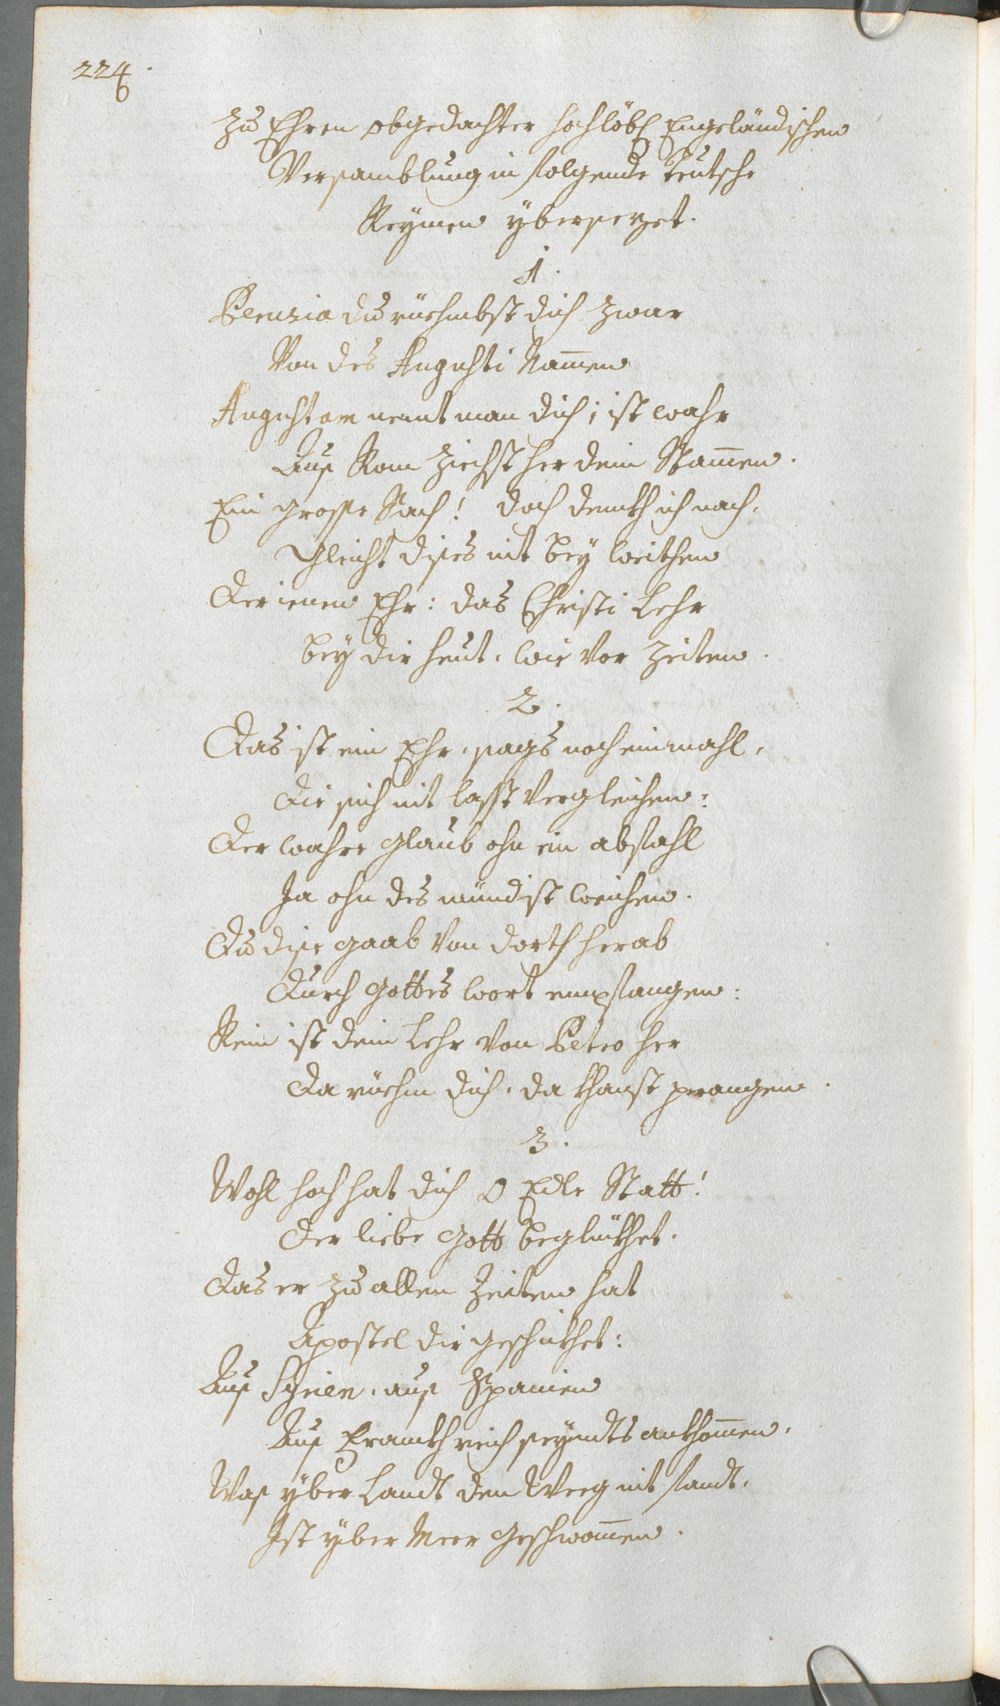 224
6
Zu Ehren obgedachter hochlöbl Engeländischen
Versamblung in folgende Teutsche
Reymen ybersezet.
1.
Perusia du rüehmbst dich zwar
Von des Augusti Nam̄en
Augustam nent man dich; ist wahr
Auß Rom ziehst her dein Stam̄en.
Ein grosse Sach! doch denckh ich nach,
Gleicht dises nit bey weithen
Der ienen Ehr: das Christi Lehr
bey dir heut, wie vor Zeiten.
2.
Das ist ein Ehr, sags noch einmahl,
Die sich nit lasst vergleichen:
Der wahre Glaub ohn ein abfahl
Ja ohn des mündist weichen.
Du dise gaab von dorth herab
Durch Gottes wort empfangen:
Rein ist dein Lehr von Petro her
Da rüehm dich, da khanst prangen.
3.
Wohl hoch hat dich O Edle Statt!
Der liebe Gott beglükhet.
Das er zu allen Zeiten hat
Apostel dir geschikhet:
Auß Syrien, auß Spanien
Auß Franckhreich seyndts ankhom̄en,
Was yber Landt den Weeg nit fandt,
Ist yber Meer geschwom̄en.